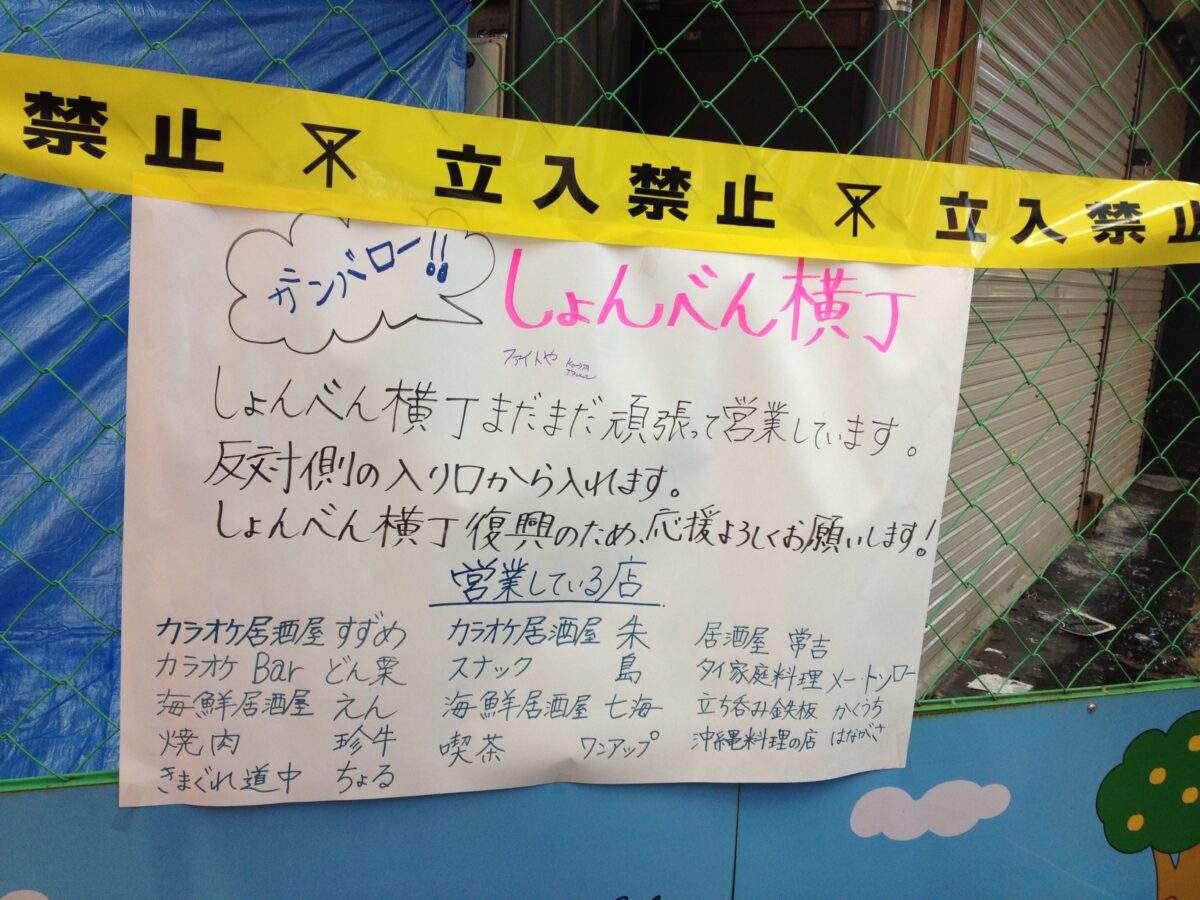 禁止 立入禁止 立入禁止
ガンバロー!!
しょんべん横丁
ファイトや
しょんべん横丁まだまだ頑張って営業しています。
反対側の入り口から入れます。
しょんべん横丁復興のため、応援よろしくお願いします!
営業している店
カラオケ居酒屋 すずめ カラオケ居酒屋 朱 居酒屋 常吉
カラオケBar どん栗 スナック 島 タイ家庭料理 メートンロー
海鮮居酒屋 えん 海鮮居酒屋 七海 立ち呑み鉄板 かくうち
焼肉 珍牛 喫茶 ワンアップ 沖縄料理の店 はながさ
きまぐれ道中 ちょる